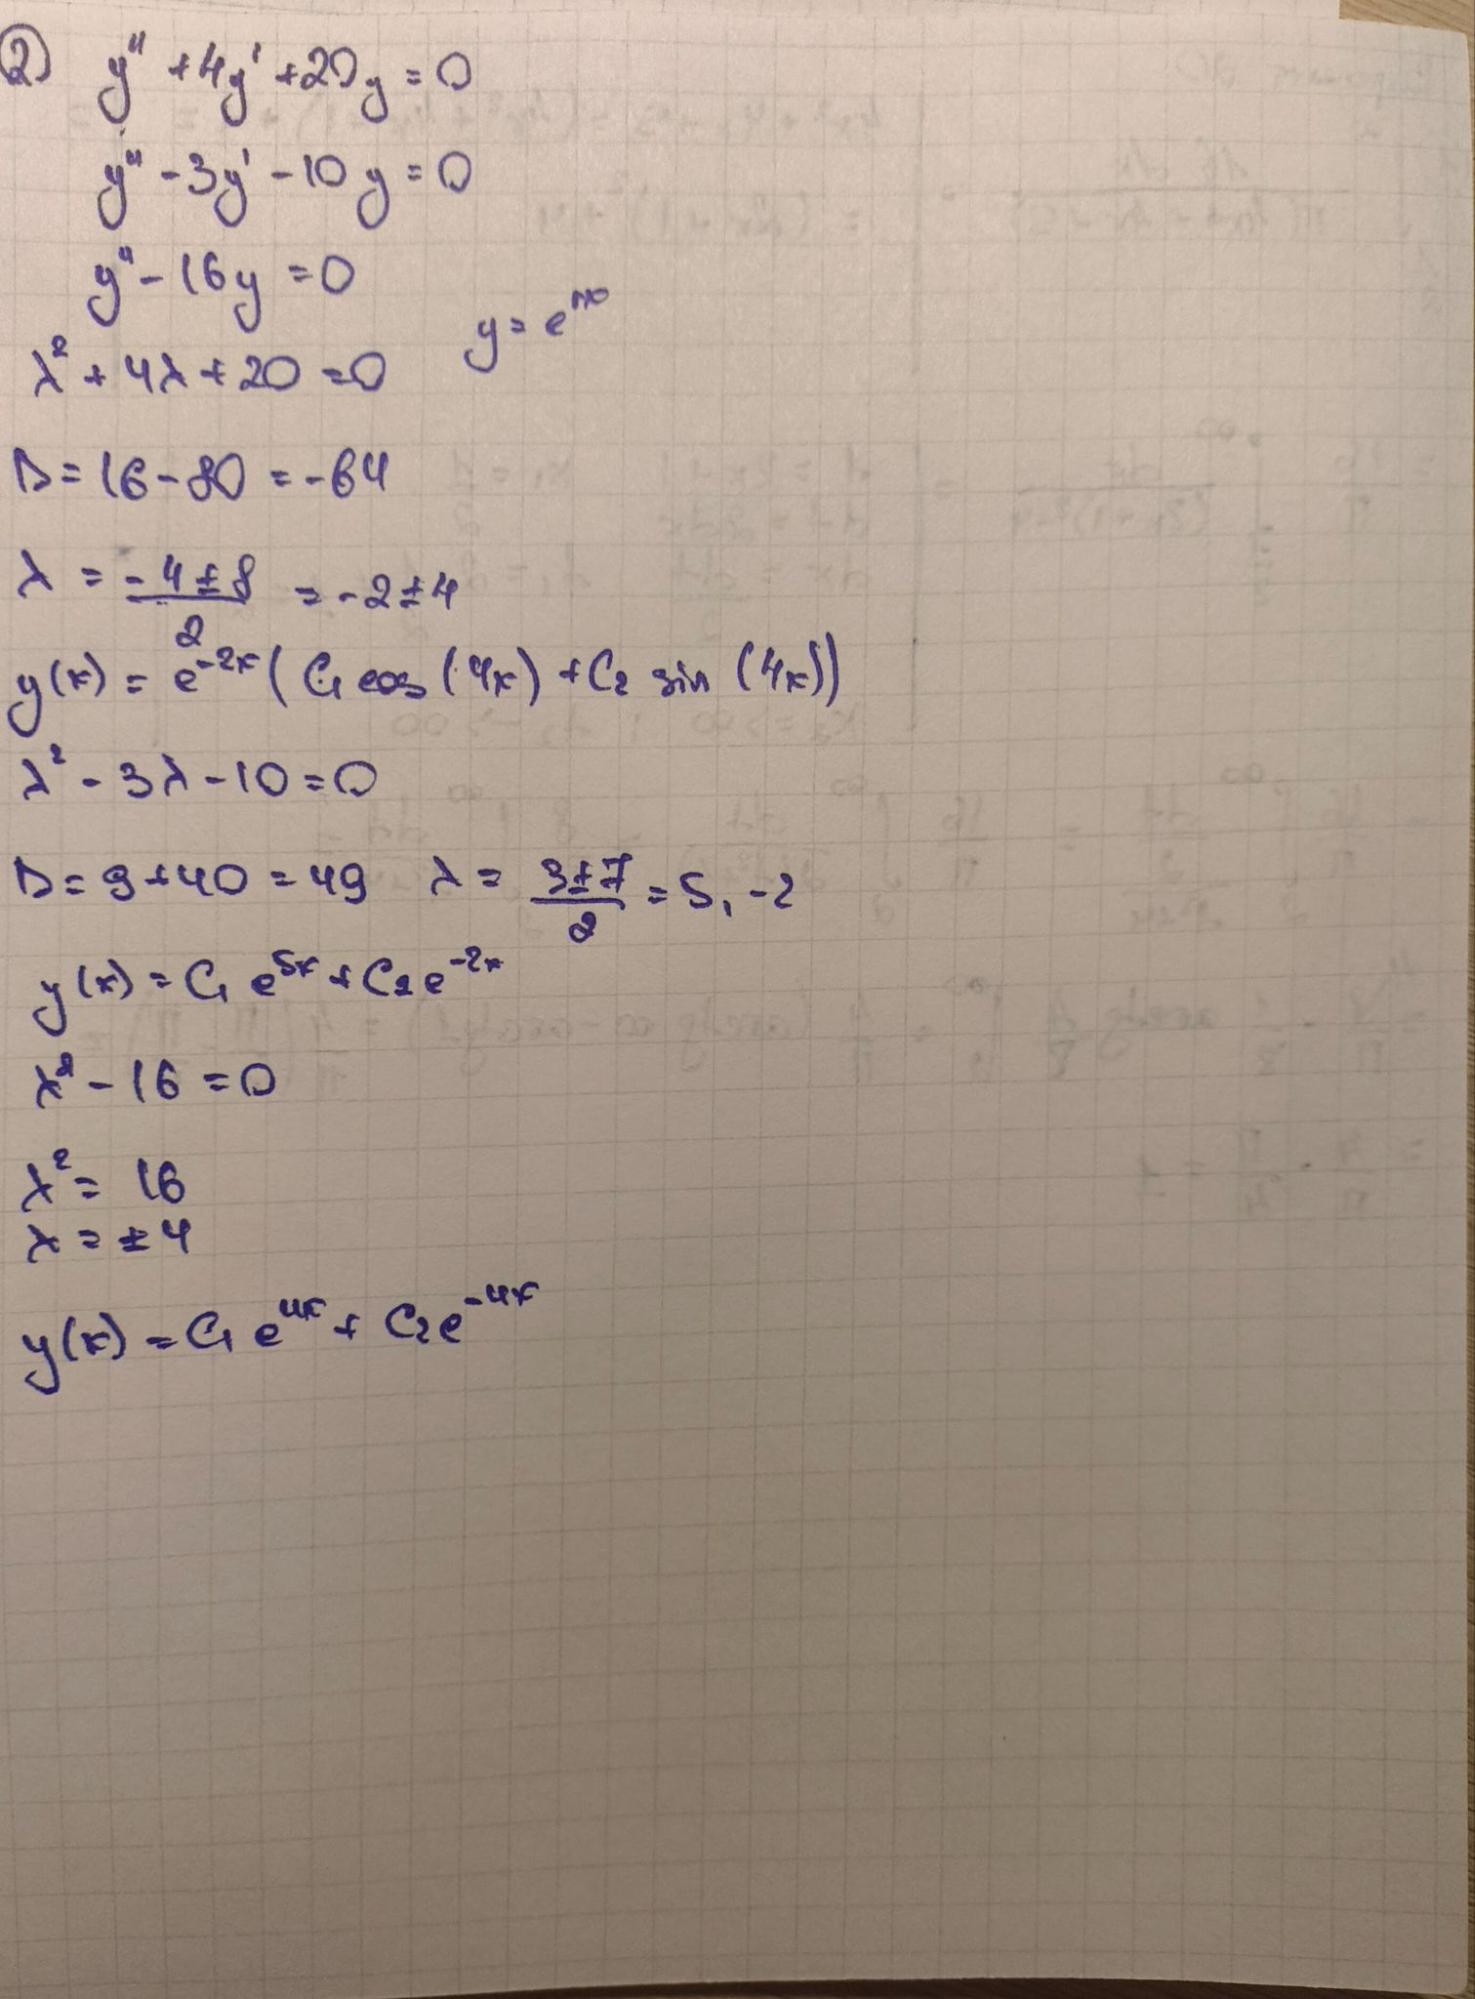 ② y'' + 4y' + 20y = 0
y'' - 3y' - 10y = 0
y'' - 16y = 0
y = e
λ² + 4λ + 20 = 0
D = 16 - 80 = -64
λ = (-4 ± 8)/2 = -2 ± 4
y(x) = e^(-2x) (C₁ cos (4x) + C₂ sin (4x))
λ² - 3λ - 10 = 0
D = 9 + 40 = 49 λ = (3 ± 7)/2 = 5, -2
y(x) = C₁ e^(5x) + C₂ e^(-2x)
λ² - 16 = 0
λ² = 16
λ = ± 4
y(x) = C₁ e^(4x) + C₂ e^(-4x)